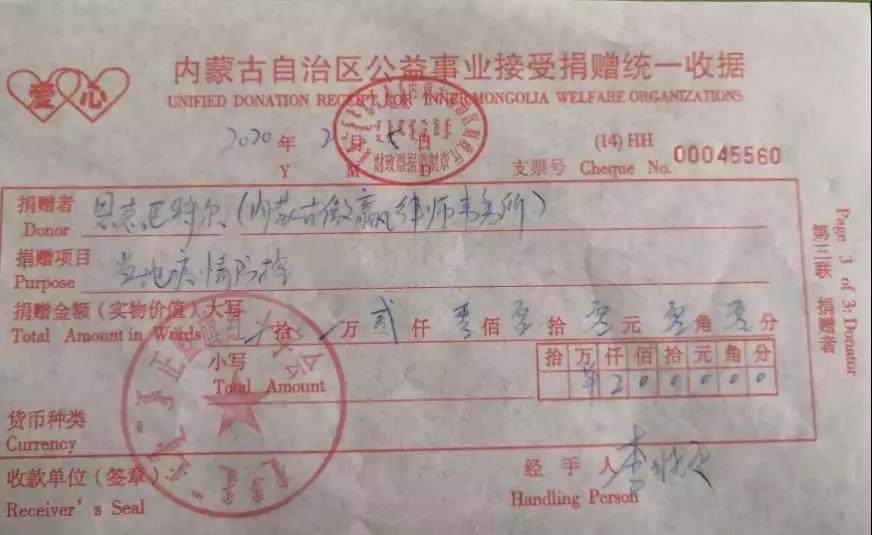 爱心
内蒙古自治区公益事业接受捐赠统一收据
UNIFIED DONATION RECEIPT FOR INNER MONGOLIA WELFARE ORGANIZATIONS
2020年2月5日
Y M D
(14) HH
支票号 Cheque No. 00045560
财政票据监制章
捐赠者
Donor
恩克巴特尔(内蒙古傲赢律师事务所)
捐赠项目
Purpose
当地疫情防控
捐赠金额(实物价值)大写
Total Amount in Words
拾 万 贰 仟 零 佰 零 拾 零 元 零 角 零 分
小写
Total Amount
拾 万 仟 佰 拾 元 角 分
¥ 2 0 0 0 0 0
货币种类
Currency
收款单位(签章)
Receiver's Seal
经手人 李
Handling Person
Page 3 of 3: Donator
第三联 捐赠者